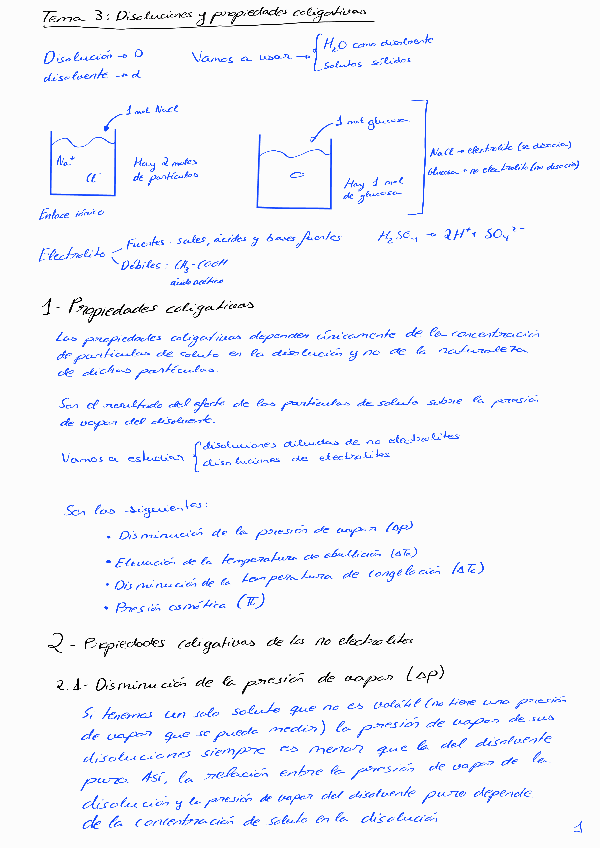 Tema 3: Disoluciones y propiedades coligativas
Disolución → D
disolvente → d
Vamos a usar → { H2O como disolvente
solutos sólidos
1 mol NaCl
Na+
Cl-
Hay 2 moles
de partículas
Enlace iónico
1 mol glucosa
Hay 1 mol
de glucosa
NaCl → electrolito (se disocia)
Glucosa → no electrolito (no disocia)
Electrolito
Fuertes: sales, ácidos y bases fuertes
Débiles: CH3-COOH
ácido acético
H2SO4 → 2H+ + SO4 2-
1- Propiedades coligativas
Las propiedades coligativas dependen únicamente de la concentración
de partículas de soluto en la disolución y no de la naturaleza
de dichas partículas.
Son el resultado del efecto de las partículas de soluto sobre la presión
de vapor del disolvente.
Vamos a estudiar { disoluciones diluidas de no electrolitos
disoluciones de electrolitos
Son las siguientes:
• Disminución de la presión de vapor (Δp)
• Elevación de la temperatura de ebullición (ΔTe)
• Disminución de la temperatura de congelación (ΔTc)
• Presión osmótica (π)
2- Propiedades coligativas de los no electrolitos
2.1- Disminución de la presión de vapor (Δp)
Si tenemos un solo soluto que no es volátil (no tiene una presión
de vapor que se pueda medir) la presión de vapor de sus
disoluciones siempre es menor que la del disolvente
puro. Así, la relación entre la presión de vapor de la
disolución y la presión de vapor del disolvente puro depende
de la concentración de soluto en la disolución
1